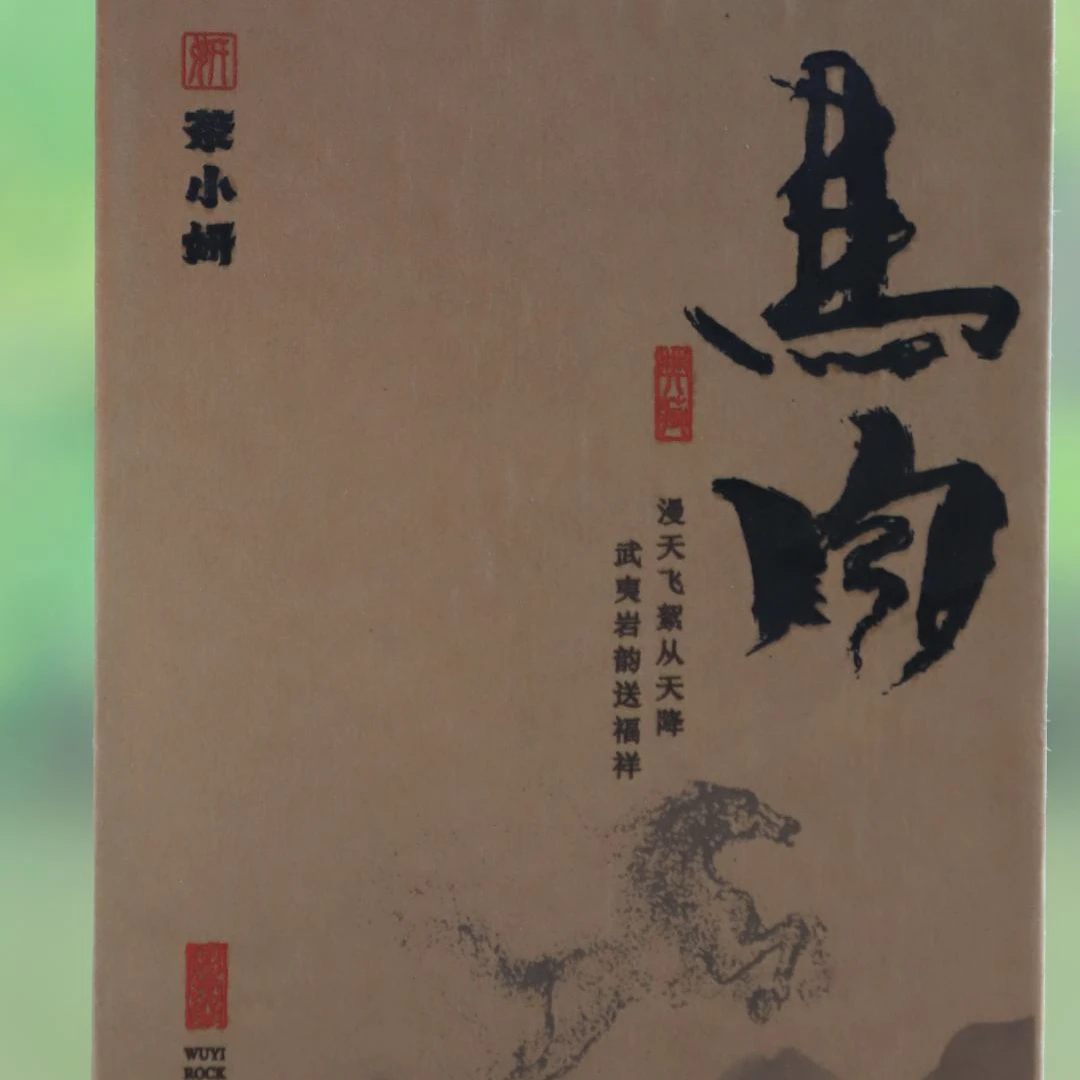 馬肉
漫天飞絮从天降
武夷岩韵送福祥
妍
茶小妍
WUYI
ROCK